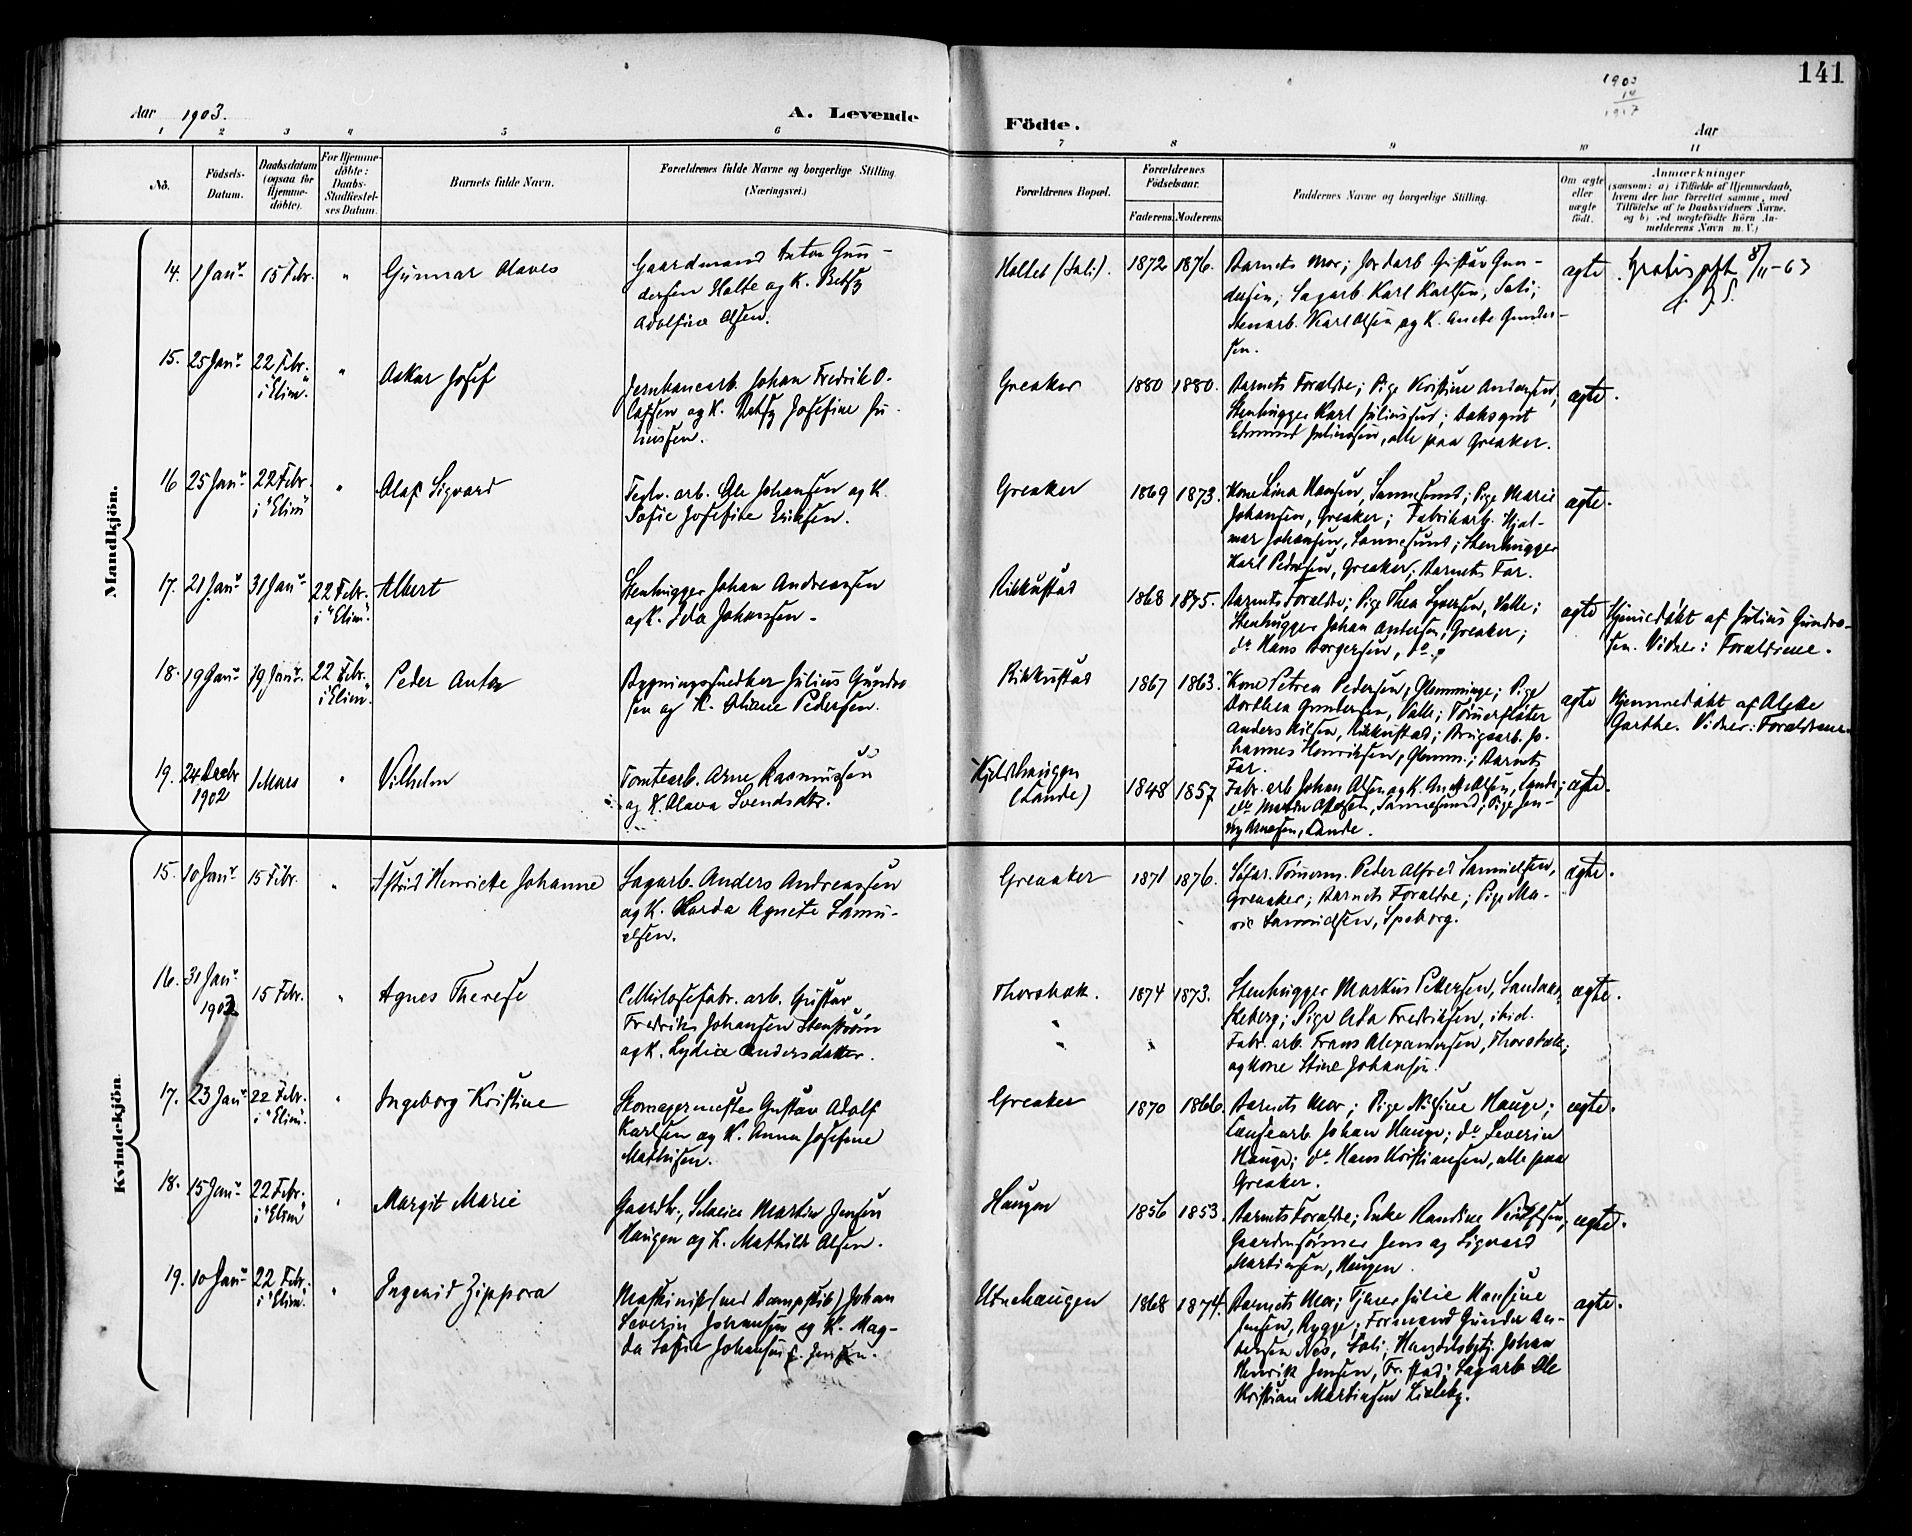 141
1903
14
1917
Aar 1903.
A. Levende
Födte.
Aar
1 2 3 4 5 6 7 8 9 10 11
No.
Födsels-
Datum.
Daabsdatum
(ogsaa for
Hjemme-
döbte).
For Hjemme-
döbte:
Daabs-
Stadfæstel-
ses Datum.
Barnets fulde Navn.
Forældrenes fulde Navne og borgerlige Stilling.
(Næringsvei.)
Forældrenes Bopæl.
Forældrenes
Födselsaar.
Faderens. Moderens.
Faddernes Navne og borgerlige Stilling.
Om ægte
eller
uægte
födt.
Anmærkninger
(saasom: a) i Tilfælde af Hjemmedaab,
hvem der har forrettet samme, med
Tilföielse af to Daabsvidners Navne.
og b) ved uægtefödte Börn An-
melderens Navn m. V.)
Mandkjön.
14. 1 Janr 15 Febr. " Gunnar Olaves
Gaardmand Anton Gun-
dersen Holte og K. Betsy
Adolfine Olsen.
Holtet (Soli). 1872 1876.
Barnets Mor; Jordarb Gustav Gun-
dersen; Sagarb Karl Karlsen, Soli;
Stenarb. Karl Olsen og K. Anette Gunder-
sen.
ægte. Gratis att 5/11-63
15. 25 Janr 22 Febr. i "Elim". " Oskar Josef
Jernbanearb. Johan Fredrik O-
lafsen og K. Betsy Josefine Ju-
liussen.
Greaker 1880 1880.
Barnets Forældre; Pige Kristine Andersen,
Stenhugger Karl Juliussen;
Edmund Juliussen, alle paa Greaker.
ægte.
16 25 Janr 22 Febr. i "Elim" " Olaf Sigvard
Teglv. arb. Ole Johansen og K.
Sofie Josefine Eriksen.
Greaker 1869 1873.
Kone Lina Hansen, Sannesund; Pige Marie
Johansen, Greaker; Fabrikarb. Hjal-
mar Johansen, Sannesund; Stenhugger
Karl Pedersen, Greaker; Barnets Far.
ægte.
17. 21 Janr 31 Janr 22 Febr. i "Elim". Albert
Stenhugger Johan Andreassen
og K. Ida Johanssen.
Rikkustad 1868 1875.
Barnets Forældre; Pige Thea Syversen, Valle;
Stenhugger Johan Antersen, Greaker;
do Hans Borgersen, do.
ægte Hjemmedöbt af Julius Gundro-
sen. Vidner: Forældrene.
18. 19 Janr 19 Janr 22 Febr. i "Elim". Peder Anton
Bygningssnedker Julius Gundro
sen og K. Oliane Pedersen.
Rikkustad 1867 1863.
Kone Petrea Pedersen, Glemminge; Pige
Dorthea Gundersen, Valle; Tømmerfløter
Anders Nilsen, Rikkustad; Brugsarb. Jo-
hannes Henriksen, Glemm.; Barnets
Far.
ægte Hjemmedöbt af
Garthe. Vidner: Forældrene.
19. 24 Decbr 1902 1 Mars " Vilhelm
Tomtearb. Arne Rasmussen
og K. Olava Svendsdtr.
Kjelshaugen
(Lande) 1848 1857
Fabr. arb Johan Olsen og K. Anette Olsen, Lande;
do Martin Olsen, Sannesund; Pige Jen-
ny Arnesen, Lande.
ægte.
Kvindekjön.
15. 10 Janr 15 Febr. " Astrid Henriette Johanne
Sagarb. Anders Andreassen
og K. Harda Agnete Samu-
elsen.
Greaaker 1871 1876.
Tømerm. Peder Alfred Samuelsen,
Greaaker; Barnets Forældre; Pige Ma-
rie Samuelsen, Speborg.
ægte.
16. 31 Janr 1902 15 Febr. " Agnes Therese
Cellulosefabr. arb. Gustav
Fredrik Johansen Stenstrøm
og K. Lydia Andersdatter.
Thorsbæk. 1874 1873.
Stenhugger Markus Pettersen, Sandbak-
keberg; Pige Ada Fredriksen, ibid.
Fabr. arb. Frans Alexandersen, Thorsbæk;
og Kone Stine Johansen.
ægte.
17. 23 Janr 22 Febr. i "Elim". " Ingeborg Kristine
Skomagermester Gustav Adolf
Karlsen og K. Anna Josefine
Mathisen.
Greaker 1870 1866.
Barnets Mor; Pige Nilsine Hauge;
Lænsearb. Johan Hauge; do Severin
Hauge; do. Hans Kristiansen, alle paa
Greaker.
ægte.
18. 15 Janr 22 Febr. i "Elim" " Margit Marie
Gaardbr., Martin Jensen
Haugen og K. Mathilde Olsen.
Haugen 1856 1853.
Barnets Forældre; Enke Randine
Gaardmsønner Jens og Sigvard
Martinsen, Haugen.
ægte.
19. 10 Janr 22 Febr. i "Elim". " Ingerid Zippora
Maskinist (ved Dampskib) Johan
Severin Johansen og K. Mag-
da Sofie Johansen f. Jensen.
Utnehaugen 1868 1874.
Barnets Mor; Tjener Julie Hansine
Jensen, Rygge; Formand Gunder An-
dersen Nes, Soli; Handelsbetj. Johan
Henrik Jensen, Fr.stad; Sagarb Ole
Kristian Martinsen Lisleby.
ægte.